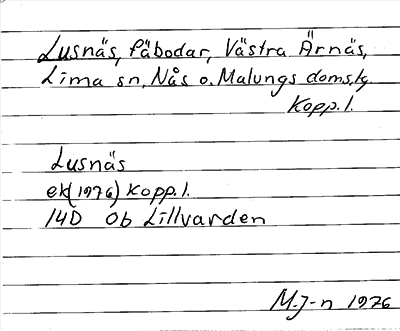 Lusnäs, fäbodar, Västra Ärnäs,
Lima sn, Nås o. Malungs doms.,
Kopp. l.
Lusnäs
ek (1976) Kopp. l.
14D 0b Lillvarden
M. J-n 1976